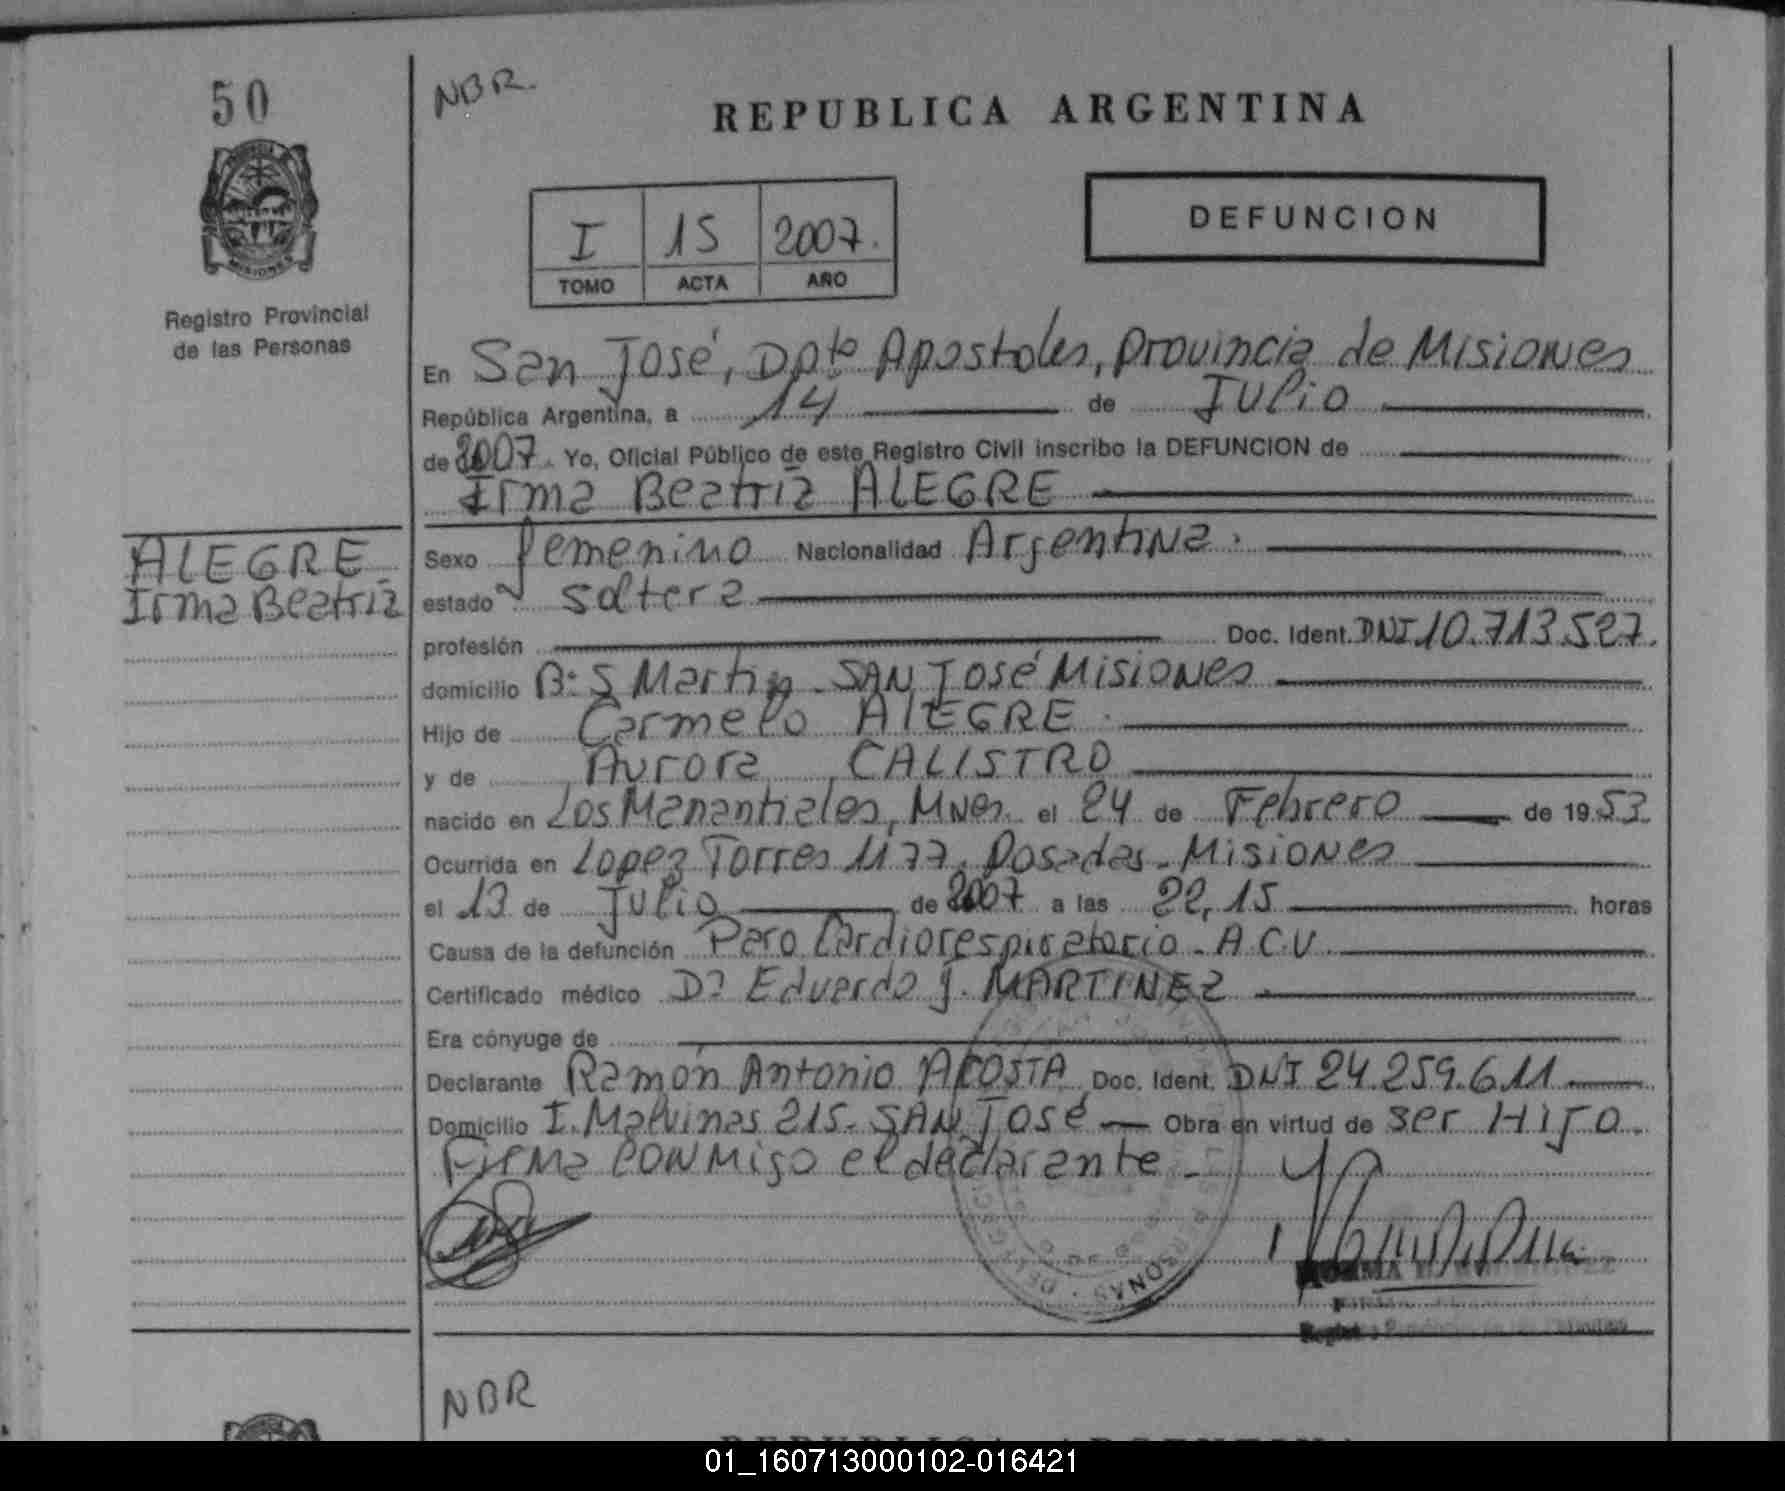 50
NBR.
REPUBLICA ARGENTINA
MISIONES
Registro Provincial
de las Personas
I 15 2007.
TOMO ACTA AÑO
DEFUNCION
En San José, Dpto Apostoles, provincia de Misiones
República Argentina, a 14 de Julio
de 2007. Yo, Oficial Público de este Registro Civil inscribo la DEFUNCION de
Irma Beatriz ALEGRE
ALEGRE
Irma Beatriz
Sexo femenino Nacionalidad Argentina.
estado soltera
profesión Doc. Ident. DNI 10.713.527.
domicilio B: S Martin - SAN José Misiones
Hijo de Carmelo ALEGRE.
y de Aurora CALISTRO
nacido en Los Manantiales, Mnes. el 24 de Febrero de 1953
Ocurrida en Lopez Torres 1177, Posadas - Misiones
el 13 de Julio de 2007 a las 22,15 horas
Causa de la defunción Paro Cardiorespiratorio - A.C.V.
Certificado médico Dr Eduardo J. MARTINEZ
Era cónyuge de
Declarante Ramón Antonio ACOSTA Doc. Ident. DNI 24.259.611
Domicilio I. Malvinas 215 - SAN José Obra en virtud de ser HIJO.
Firma conmigo el declarante -
PERSONAS
NORMA
NBR
REPUBLICA ARGENTINA
01_160713000102-016421